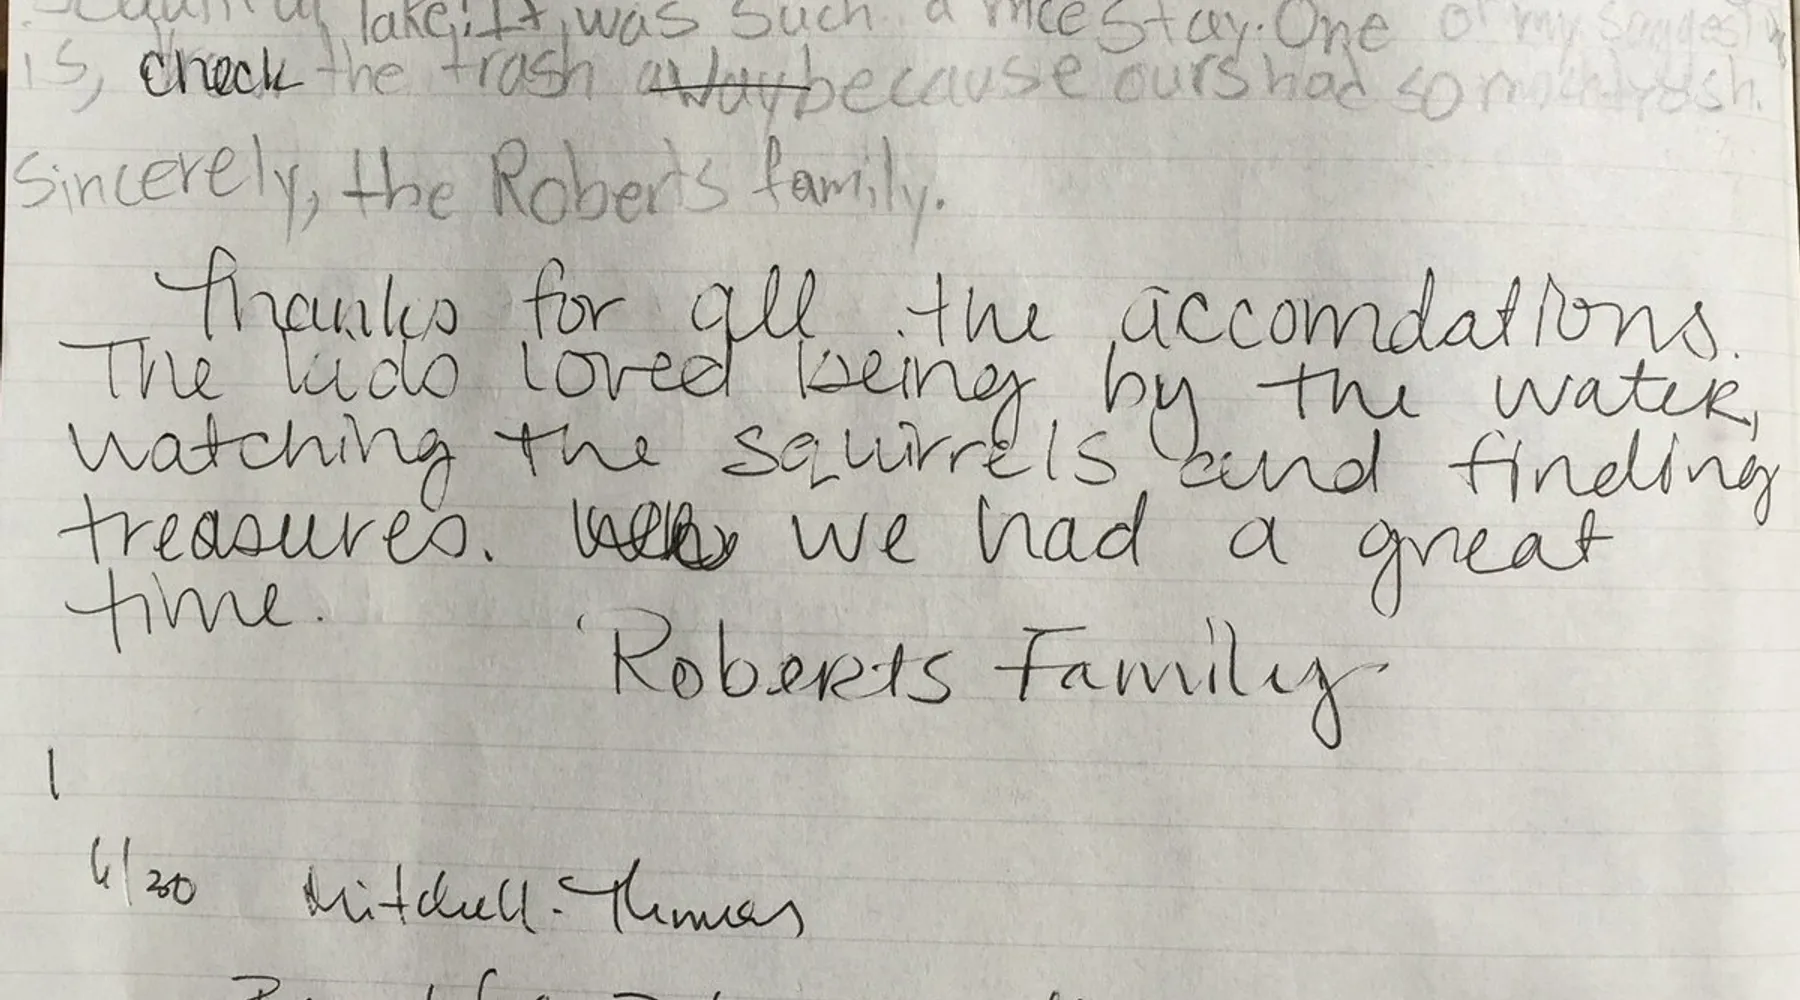 beautiful lake! It was such a nice stay. One of my suggestion
is, check the trash away because ours had so much trash.
Sincerely, the Roberts family.
Thanks for all the accomdations.
The kids loved being by the water,
watching the squirrels and finding
treasures. we had a great
time.
Roberts Family
6/30 Mitchell-Thomas